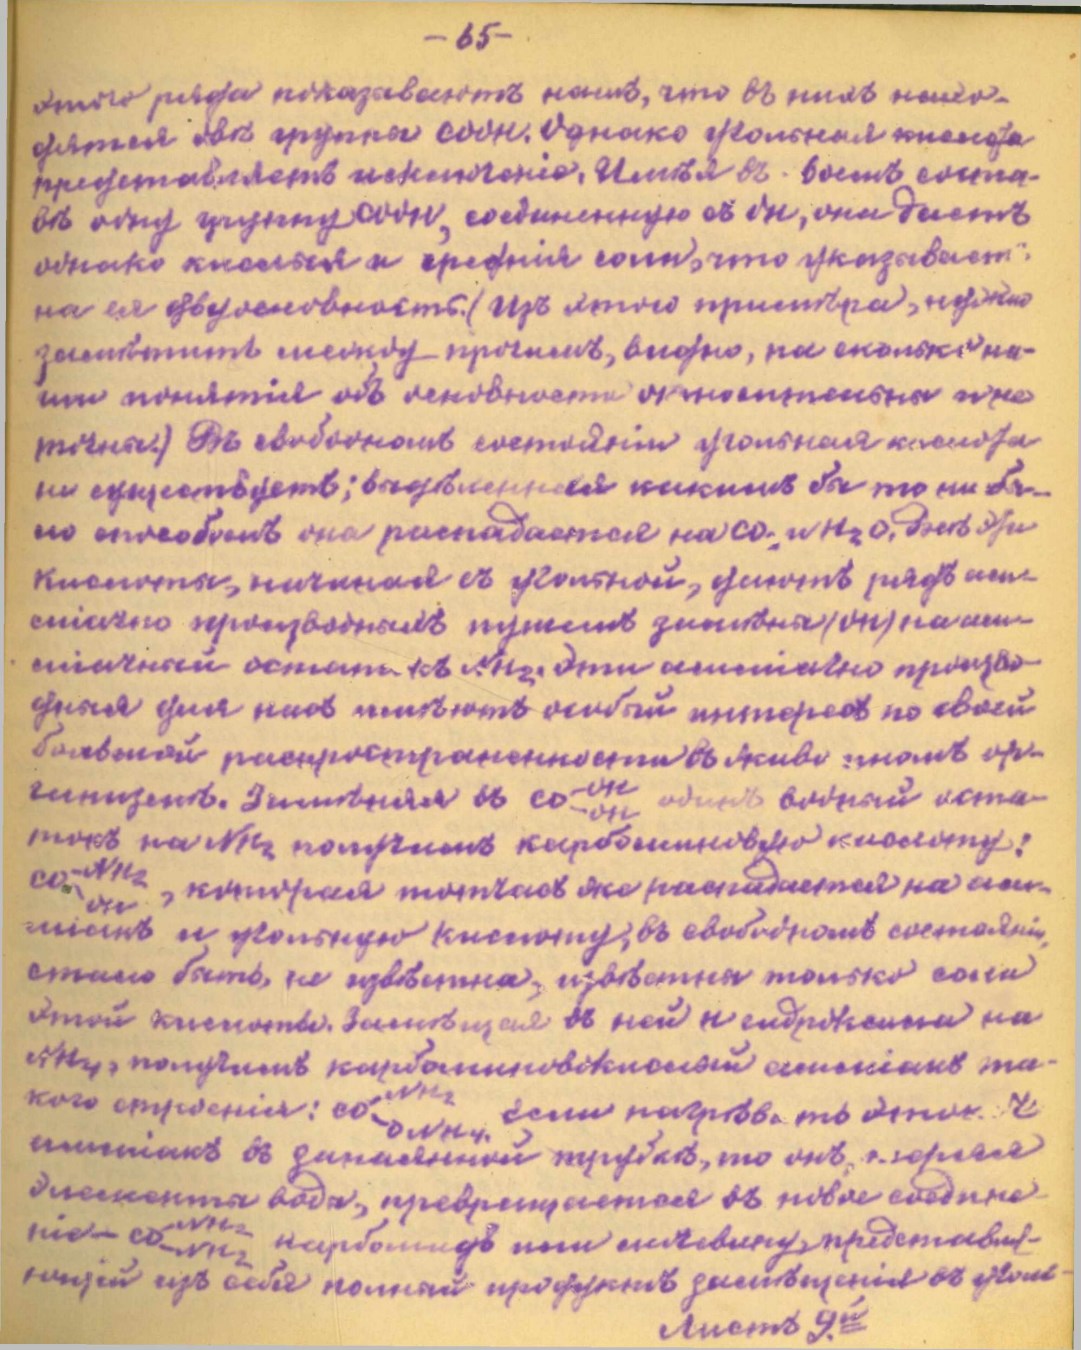 -65-
этого ряда показываютъ намъ, что въ нихъ нахо-
дятся двѣ группы COOH. Однако угольная кислота
представляетъ исключеніе. Имѣя въ своемъ соста-
вѣ одну группу COOH, соединенную съ OH, она даетъ
однако кислыя и среднія соли, что указываетъ
на ея двуосновность. (Изъ этого примѣра, нужно
замѣтить между прочимъ, видно, на сколько на-
ши понятія объ основности относительны и не
точны.) Въ свободномъ состояніи угольная кислота
не существуетъ; выдѣленная какимъ бы то ни бы-
ло способомъ она распадается на CO2 и H2O. Всѣ эти
кислоты, начиная съ угольной, даютъ рядъ ам-
міачно производныхъ путемъ замѣны (OH) на ам-
міачный остатокъ NH2. Эти амміачно произво-
дныя для насъ имѣютъ особый интересъ по своей
большой распространенности въ животномъ ор-
ганизмѣ. Замѣняя въ CO-OH-OH одинъ водный оста-
токъ на NH2 получимъ карбаминовую кислоту:
CO-NH2-OH, которая тотчасъ же распадается на ам-
міакъ и угольную кислоту; въ свободномъ состояніи,
стало быть, не извѣстна, извѣстны только соли
этой кислоты. Замѣщая въ ней H гидроксила на
NH4, получимъ карбаминовокислый амміакъ та-
кого строенія: CO-NH2-ONH4. Если нагрѣвать этотъ
амміакъ въ запаянной трубкѣ, то онъ, теряя
элементы воды, превращается въ новое соедине-
ніе - CO-NH2-NH2 карбамидъ или мочевину, представля-
ющій изъ себя полный продуктъ замѣщенія въ уголь-
Листъ 9.й